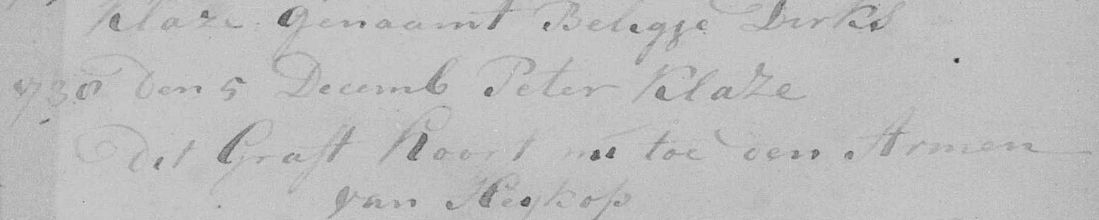 Klaze genaamt Beligje Dirks
1738 den 5 Decemb Peter Klaze
dit Graft hoort nu toe den Armen
van Heykop